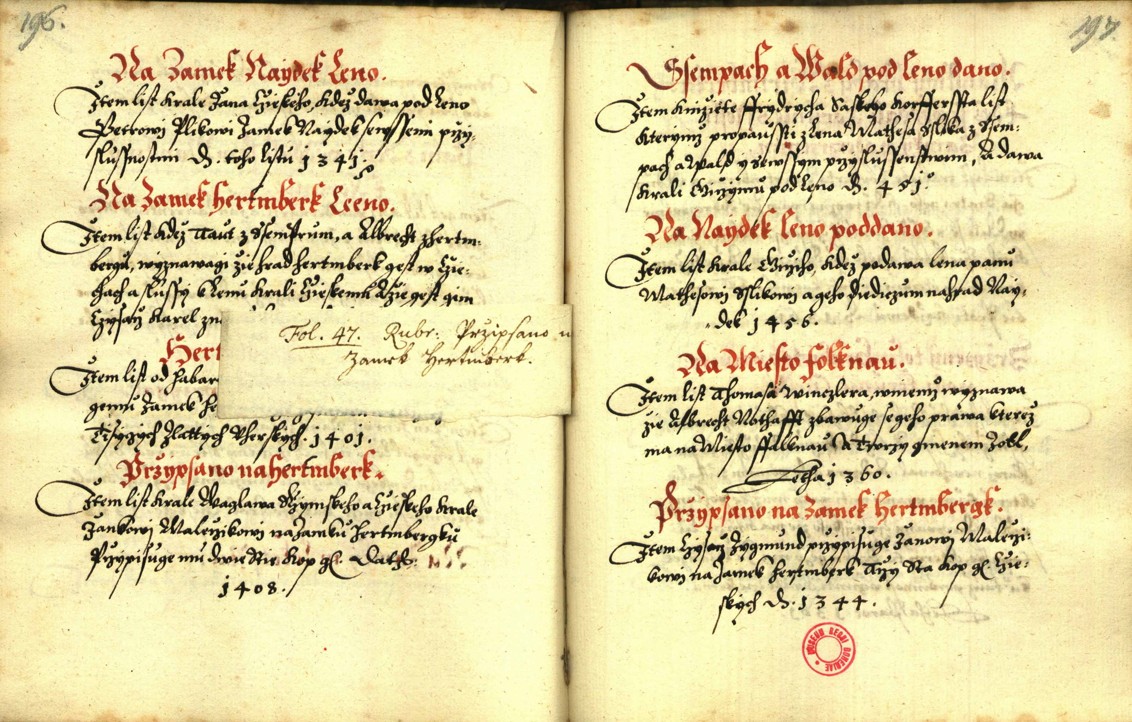 196.
Na Zamek Naydek Leno.
Item list Krale Jana Czieskeho, kdez dawa pod leno
Petrowi Plikowi Zamek Naydek se wssemi przy-
slussnostmi D. toho listu 1341.
Na Zamek Hertmberk Leeno.
Item list kdez Taut z Ssemtrum, a Albrecht z Hertm-
bergu, wyznawagi zie hrad Hertmberk gest w Czie-
chach a slussy k lenu Krali Czieskemu A zie gest gim
Czysarz Karel
Item list od
gemu Zamek
Tisyczych Zlattych Vherskych. 1401.
Fol. 47. Rubr: Przipsano
Zamek Hertmberk.
Przypsano na Hertmberk.
Item list Krale Waglawa Rzymskeho a Czieskeho Krale
Jankowi Malerzikowi na Zamku Hertmbergku
Przypisuge mu dwie Stie kop gr.
1408.
197
Ssempach a Wald pod leno dano.
Item Knizete Ffrydrycha Saskeho Korfferssta list
kterymz propaussti z lena Mathesa Sslika z Ssem-
pach a Wald y se wssym przyslussenstwim, A dawa
Krali Girzymu pod leno D. 451.
Na Naydek leno poddano.
Item list Krale Girziho, kdez podawa lena panu
Mathesowi Sslikowi a geho Diediczum na hrad Nay-
dek 1456.
Na Miesto Folknau.
Item list Thomasa Winczlera, w niemz wyznawa
zie Albrecht Nothafft zbawuge se geho prawa kterez
ma na Miesto Ffalknau A Tworzy gmenem
Letha 1360.
Przypsano na Zamek Hertmbergk.
Item Czysarz Zygmund przypisuge Janowi Malerzi-
kowi na Zamek Hertmberk Trzy Sta kop gr. Czie-
skych D. 1344.
MUSEUM REGNI BOHEMIAE